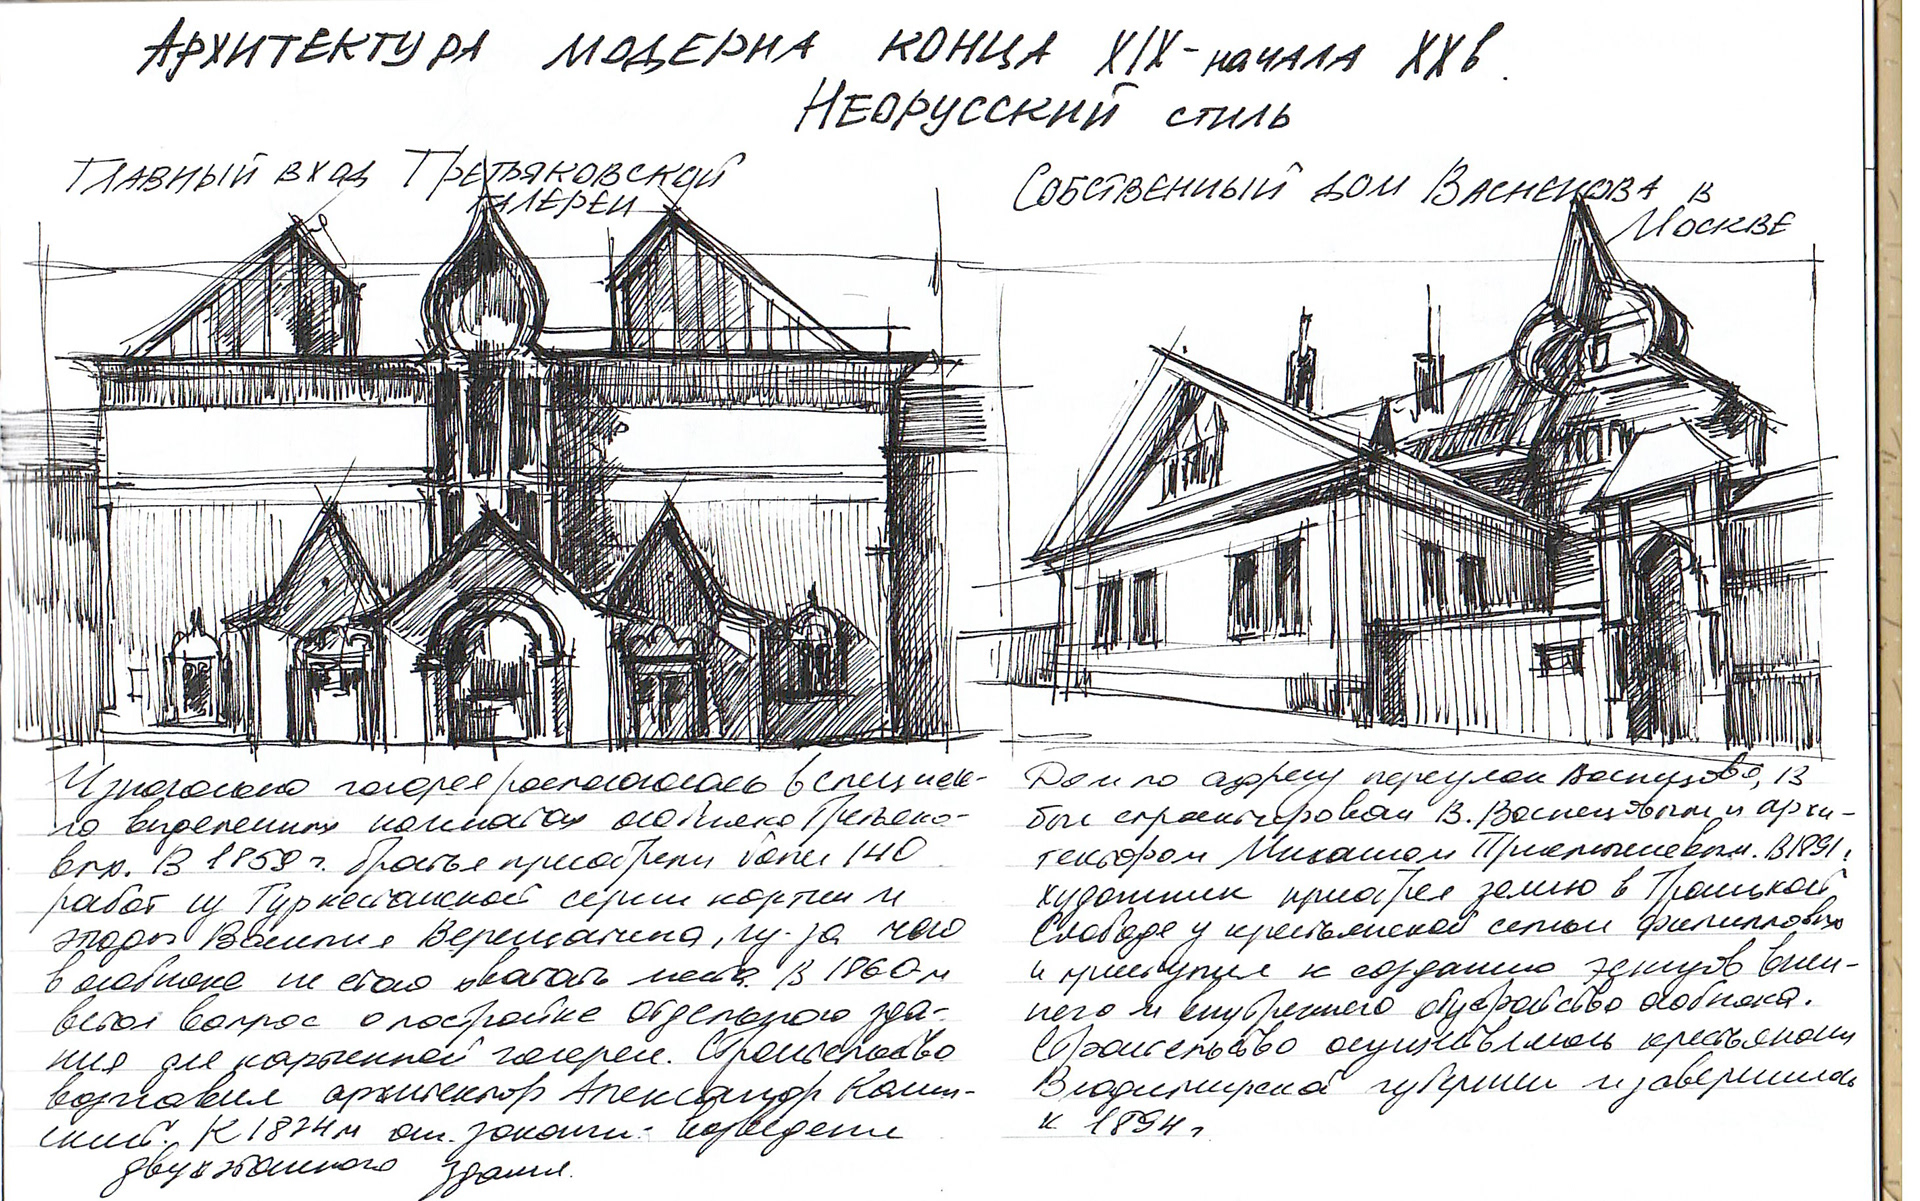 Архитектура модерна конца XIX-начала XX в.
Неорусский стиль
Главный вход Третьяковской
галереи
Собственный дом Васнецова в
Москве
Изначально галерея располагалась в специаль-
но выделенных комнатах особняка Третьяко-
вых. В 18 г. братья приобрели более 140
работ из Туркестанской серии картин и
этюды Василия Верещагина, из-за чего
в особняке не стало хватать места. В 1860-м
встал вопрос о постройке отдельного зда-
ния для картинной галереи. Строительство
возглавил архитектор Александр Камин-
ский. К 1874м он закончил возведение
двухэтажного здания.
Дом по адресу переулок Васнецова, 13
был спроектирован В. Васнецовым и архи-
тектором Михаилом Приемышевым. В 1891г
художник приобрел землю в Троицкой
Слободе у крестьянской семьи Филипповых
и приступил к созданию эскизов внеш-
него и внутреннего обустройства особняка.
Строительство осуществлялось крестьянами
Владимирской губернии и завершилось
к 1894г